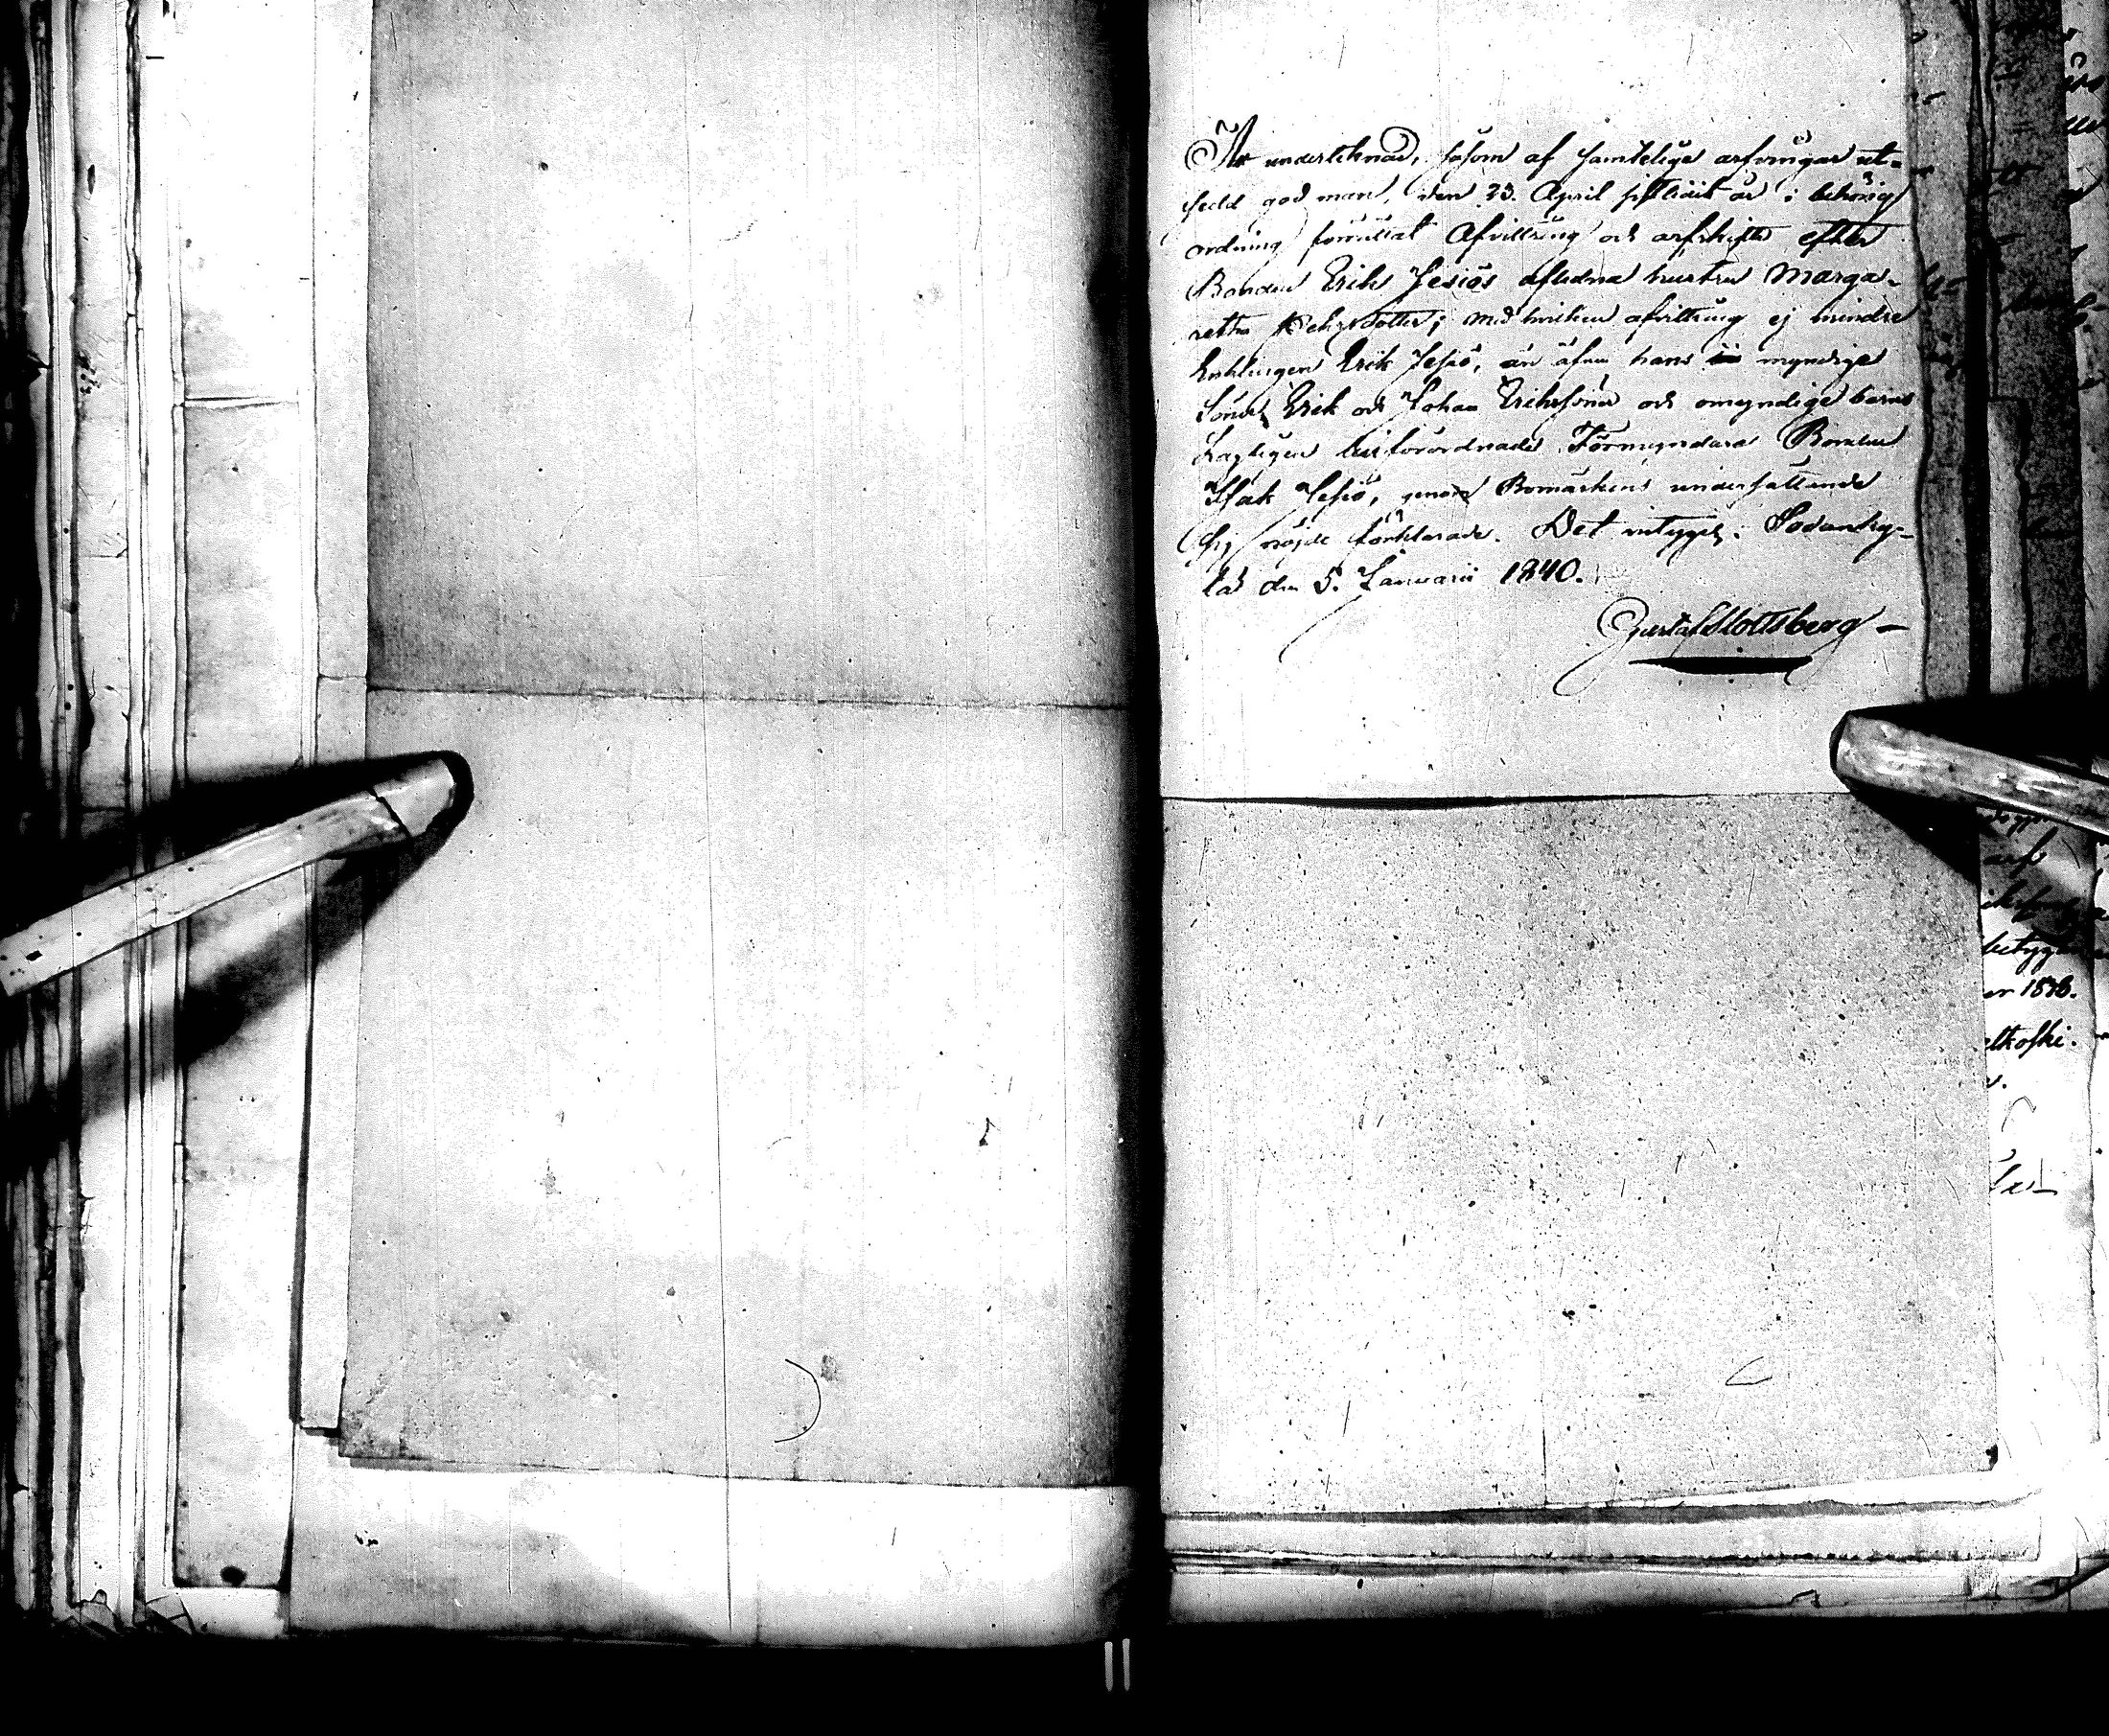 At underteknad, såsom af samtelige arfvingar ut-
sedd god man, den 23. April sistledit år i behörig
ordning förrättat Afvittring och arfskifte efter
Bonden Erik Jesiös aflidna hustru Marga-
retha Pehrsdotter; med hvilken afvittring ej mindre
Enklingen Erik Jesiö, än äfven hans myndige
Söner Erik och Johan Erikssöner och omyndige barns
Lagligen förordnade Förmyndare Bonden
Isak Jesiö, genom Bomärkens undersättande
sig nöjde förklarade. Det intygas. Sodanky-
lä den 5. Januarii 1840.
Gustaf Slottsberg
arfs
betyg
er 1838.
elkoski.